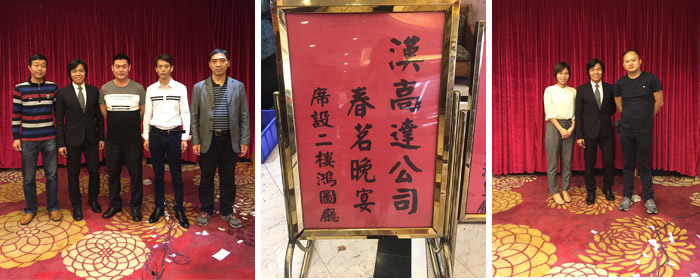 漢高達公司
春茗晚宴
席設二樓鴻圖廳